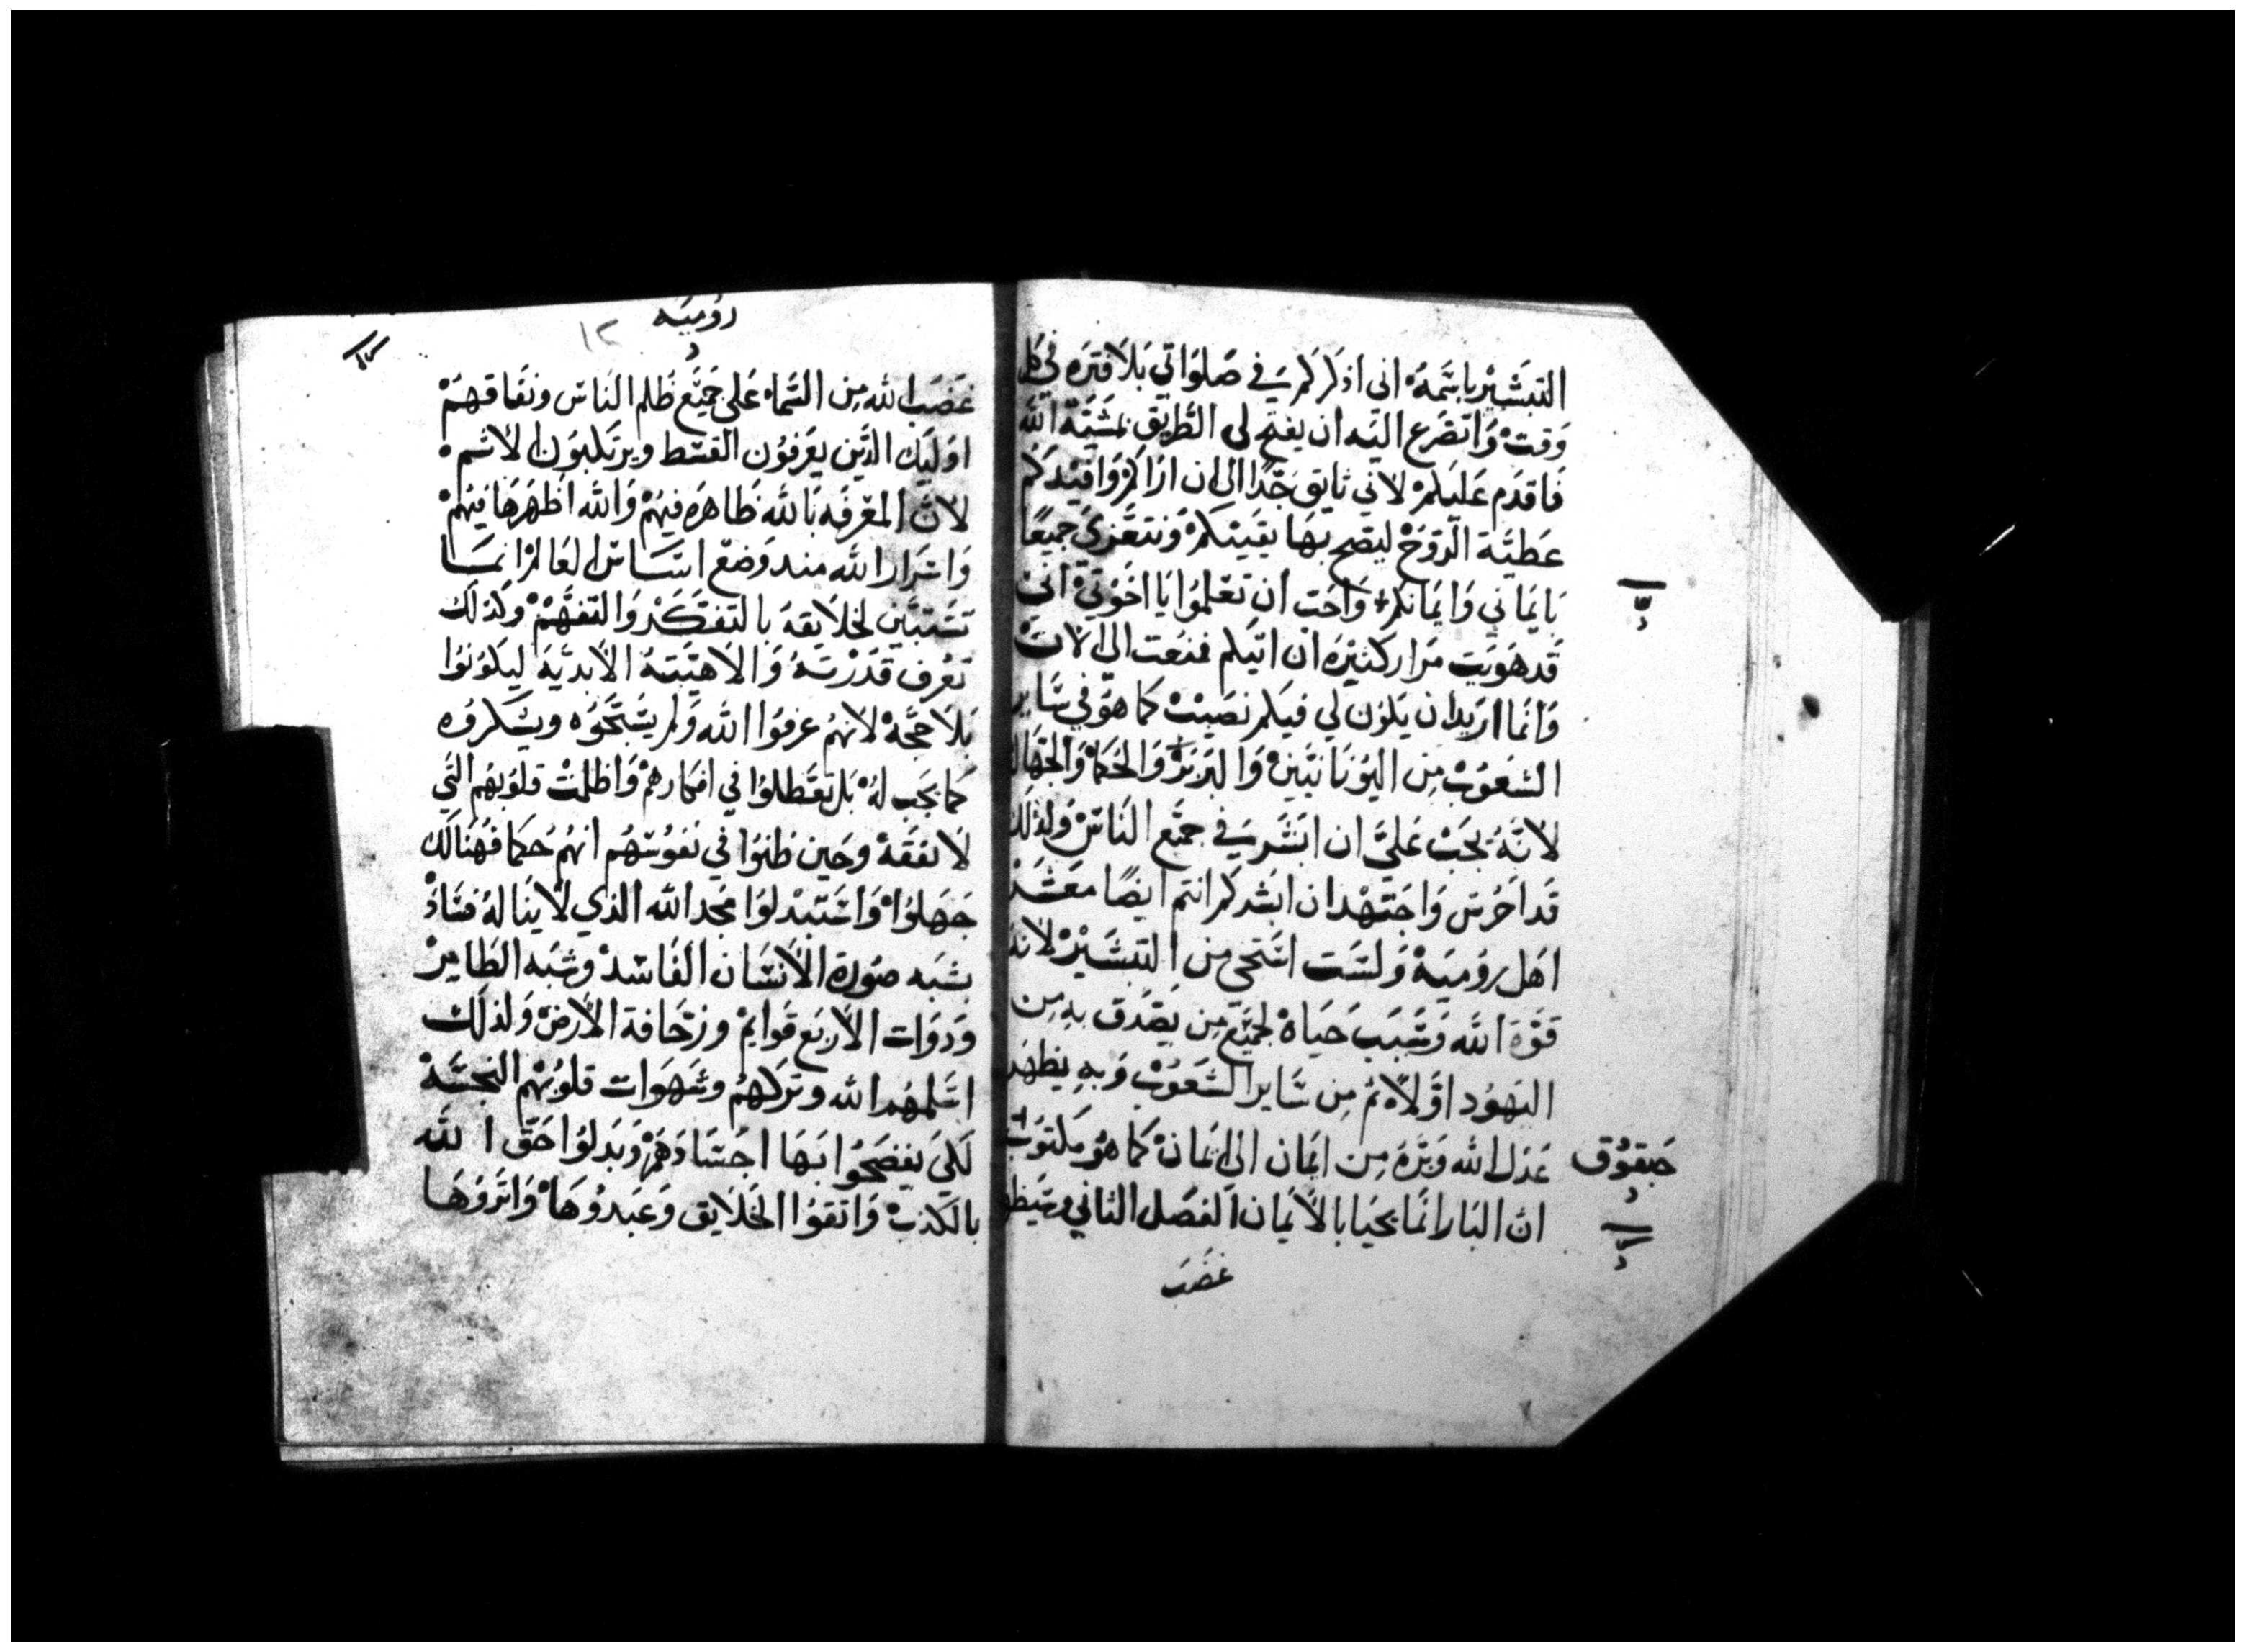 التبشير بابنه اني اذكركم في صلواتي بلا فتره في كل
وقت واتضرع اليه ان يفتح لي الطريق بمشية الله
فاقدم عليكم لاني تايق جدا الى ان اراكم وافيدكم
عطية الروح ليصح بها يقينكم ونتعزي جميعا
بايماني وايمانكم واحب ان تعلموا يا اخوتي اني
قد هويت مرار كثيره ان اتيكم فمنعت الي الان
وانما اريد ان يكون لي فيكم نصيب كما هو في ساير
الشعوب من اليونانيين والبربر والحكما والجهال
لانه يجب علي ان ابشر في جميع الناس ولذلك
قد احرص واجتهد ان ابشركم انتم ايضا معشر
اهل رومية ولست استحي من التبشير لانه
قوة الله وسبب حياة لجميع من يصدق به من
اليهود اولا ثم من ساير الشعوب وبه يظهر
عدل الله وبره من ايمان الى ايمان كما هو مكتوب
حبقوق
ان البار انما يحيا بالايمان الفصل الثاني وسيظهر
غضب
روميه
١٢
غضب الله من السماء على جميع ظلم الناس ونفاقهم
اوليك الذين يعرفون القسط ويرتكبون الاثم
لان المعرفه بالله ظاهره فيهم والله اظهرها فيهم
واسرار الله منذ وضع اساس العالم انما
تستبين لخلايقه بالتفكر والتفهم وكذلك
تعرف قدرته والاهيته الابدية ليكونوا
بلا حجة لانهم عرفوا الله ولم يسبحوه ويشكروه
كما يجب له بل تعطلوا في افكارهم واظلمت قلوبهم التي
لا تفقه وحين ظنوا في نفوسهم انهم حكما فهنالك
جهلوا واستبدلوا مجد الله الذي لا يناله فساد
بشبه صورة الانسان الفاسد وشبه الطاير
ودوات الاربع قوايم وزحافة الارض ولذلك
اسلمهم الله وتركهم وشهوات قلوبهم النجسة
لكي يفضحوا بها اجسادهم وبدلوا حق الله
بالكذب واتقوا الخلايق وعبدوها واثروها